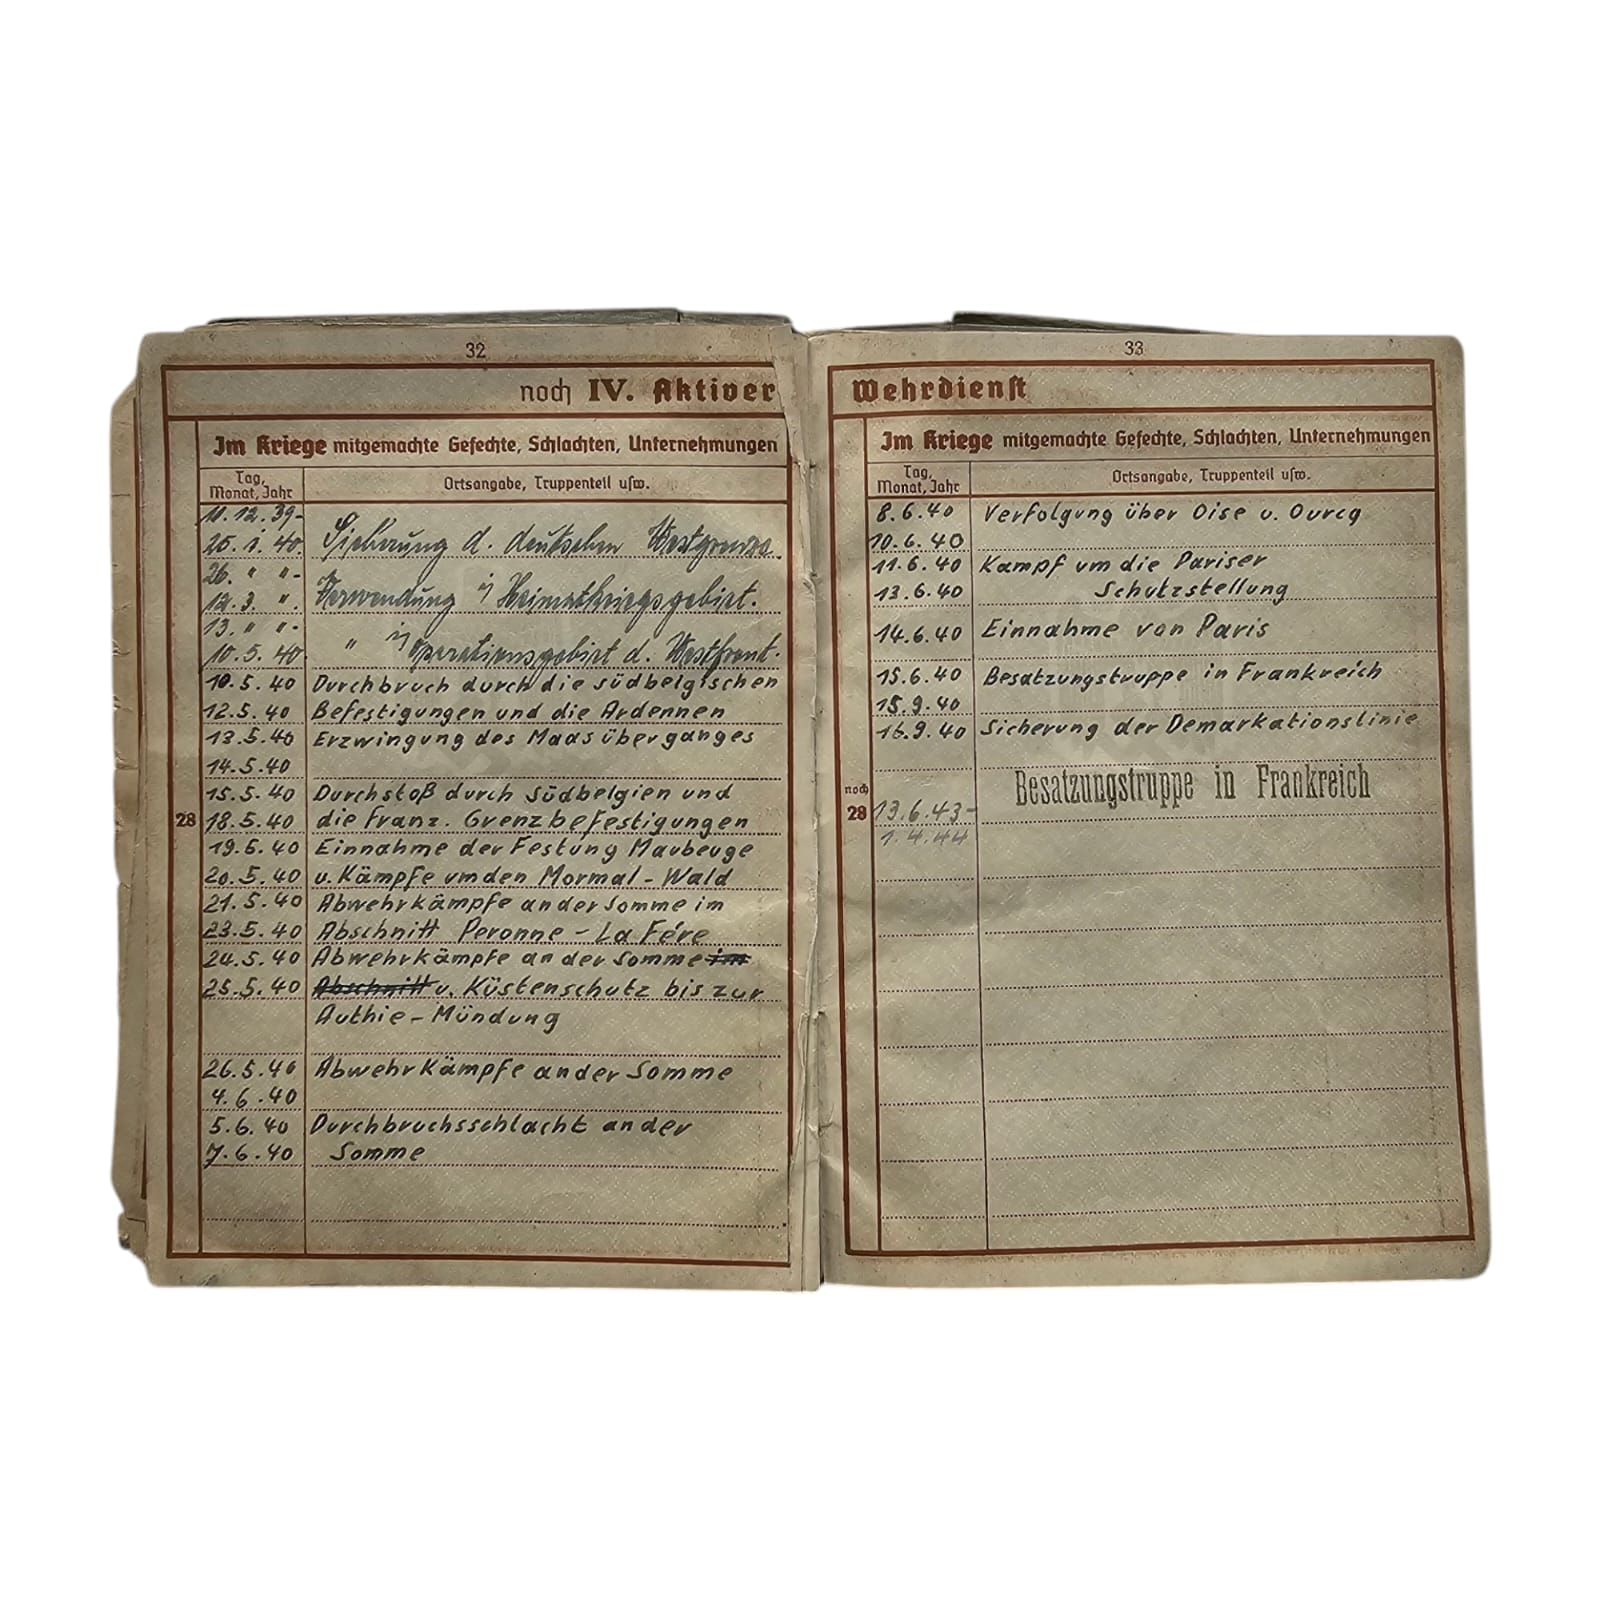 32
noch IV. Aktiver
Im Kriege mitgemachte Gefechte, Schlachten, Unternehmungen
Tag, Monat, Jahr
Ortsangabe, Truppenteil usw.
11.12.39-
25.1.40. Sicherung d. deutschen Westgrenze.
26. " "-
12.3. ". Verwendung i/ Heimatkriegsgebiet.
13. " "-
10.5.40. " i/ Operationsgebiet d. Westfront.
10.5.40 Durchbruch durch die südbelgischen
12.5.40 Befestigungen und die Ardennen
13.5.40 Erzwingung des Maasüberganges
14.5.40
15.5.40 Durchstoß durch Südbelgien und
28 18.5.40 die franz. Grenzbefestigungen
19.5.40 Einnahme der Festung Maubeuge
20.5.40 u. Kämpfe um den Mormal-Wald
21.5.40 Abwehrkämpfe an der Somme im
23.5.40 Abschnitt Peronne - La Fére
24.5.40 Abwehrkämpfe an der Somme im
25.5.40 Abschnitt u. Küstenschutz bis zur
Authie-Mündung
26.5.40 Abwehrkämpfe an der Somme
4.6.40
5.6.40 Durchbruchsschlacht an der
7.6.40 Somme
33
Wehrdienst
Im Kriege mitgemachte Gefechte, Schlachten, Unternehmungen
Tag, Monat, Jahr
Ortsangabe, Truppenteil usw.
8.6.40 Verfolgung über Oise u. Ourcq
10.6.40
11.6.40 Kampf um die Pariser
13.6.40 Schutzstellung
14.6.40 Einnahme von Paris
15.6.40 Besatzungstruppe in Frankreich
15.9.40
16.9.40 Sicherung der Demarkationslinie
Besatzungstruppe in Frankreich
noch
28 13.6.43-
1.4.44